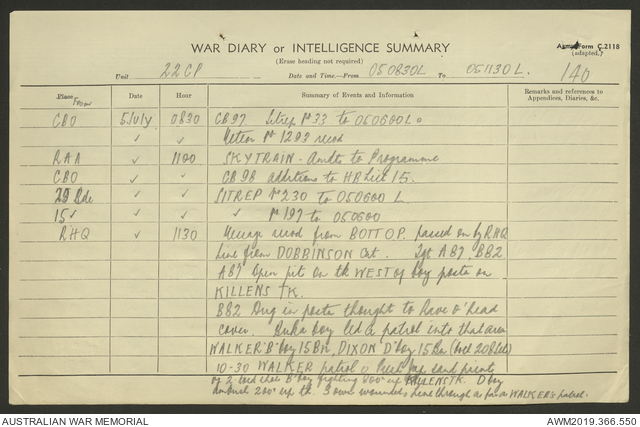 Army Form C.2118
WAR DIARY or INTELLIGENCE SUMMARY
(adapted.)
(Erase heading not required)
Unit 22CP Date and Time.—From 050830L To 051130L. 140
Place From Date Hour Summary of Events and Information Remarks and references to Appendices, Diaries, &c.
CBO 5 July 0830 CB97 Sitrep No 33 to 050600L.
✓ ✓ Meteor No 1293 recd
RAA ✓ 1100 SKYTRAIN - Amdts to Programme
CBO ✓ ✓ CB98 additions to HB List 15.
29 Bde ✓ ✓ SITREP No 230 to 050600 L
15 ✓ ✓ ✓ ✓ No 197 to 050600
RHQ ✓ 1130 Message recd from BOTT OP. passed on by RHQ
Line from DOBBINSON Cpt. Tgt A87, BB2
A87 Open pit on the WEST of boy posts on
KILLENS TK.
BB2 Dug in posts thought to have o'head
cover. Buka boy led a patrol into that area
WALKER 'B' Coy 15 Bn, DIXON D' Coy 15 Bn
10-30 WALKER patrol
of 2 B' Coy fighting 400x up KILLENS TK. D Coy
ambush 200x up tk. 3 own wounded come through as far as WALKER's patrol.
AUSTRALIAN WAR MEMORIAL
AWM2019.366.550